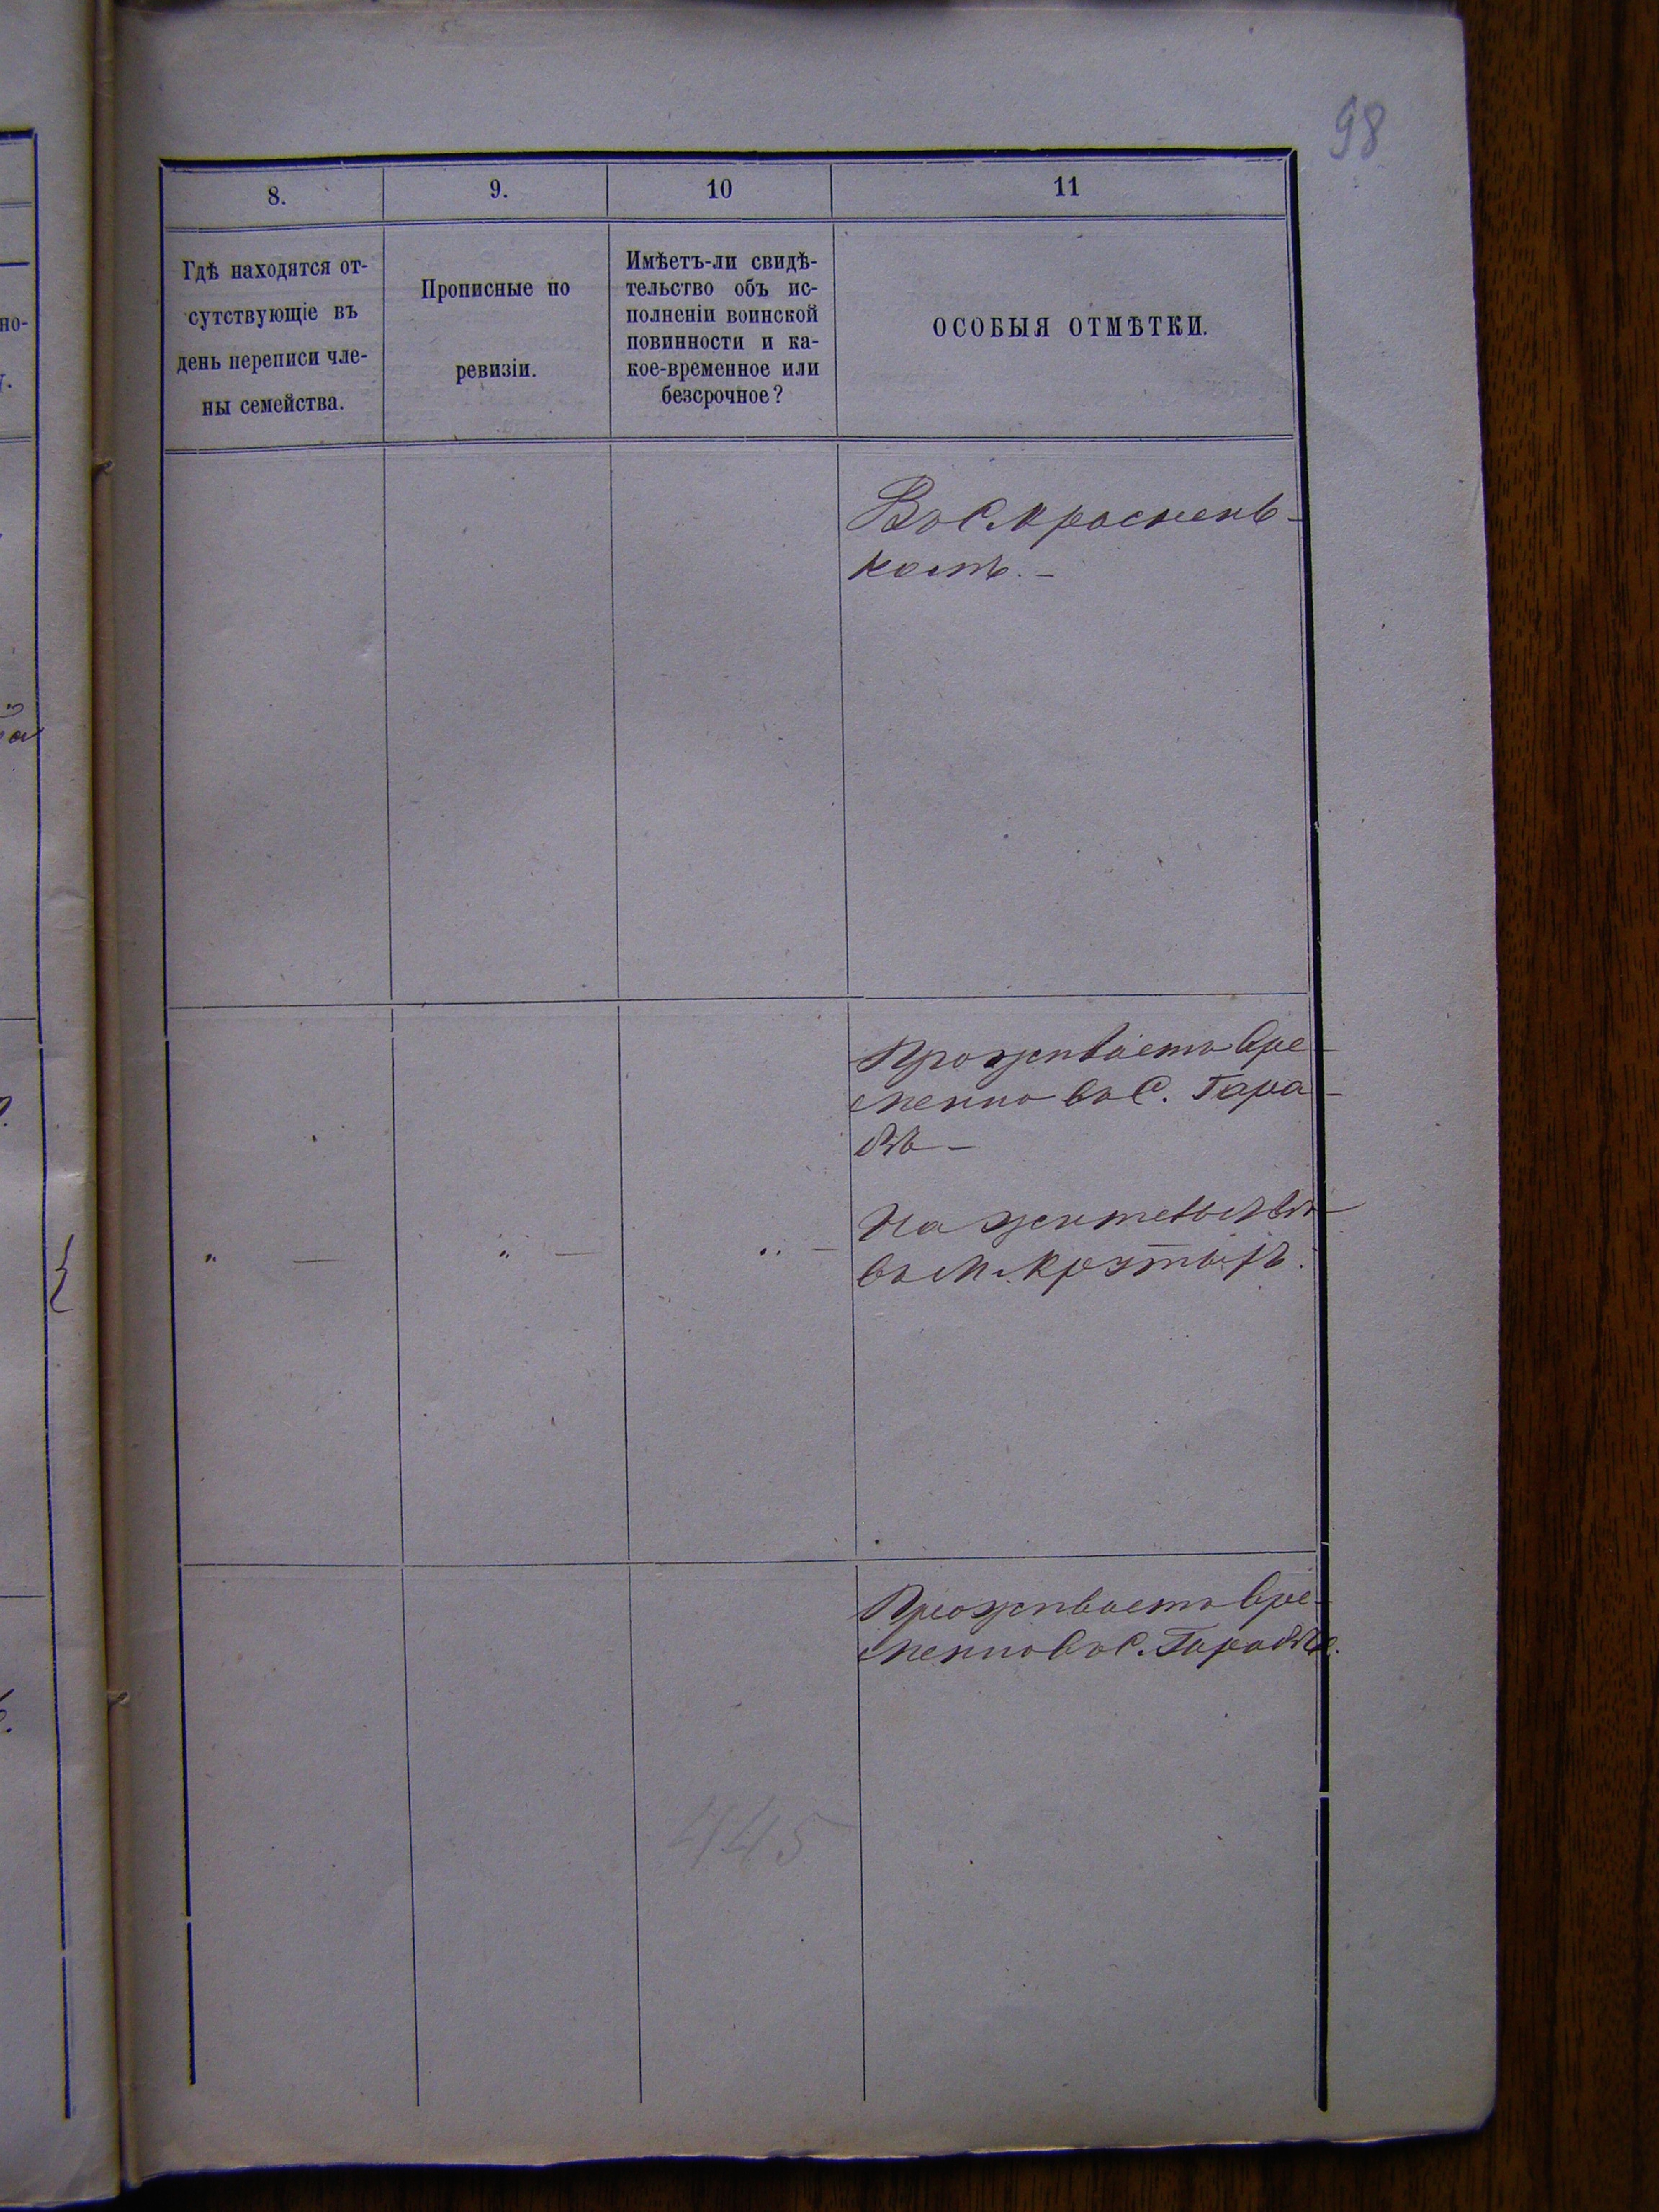 98
8.
9.
10
11
Гдѣ находятся от-
сутствующіе въ
день переписи чле-
ны семейства.
Прописные по
ревизіи.
Имѣетъ-ли свидѣ-
тельство объ ис-
полненіи воинской
повинности и ка-
кое-временное или
безсрочное?
ОСОБЫЯ ОТМѢТКИ.
Въ С. Краснень-
комъ. —
Проживаетъ вре-
менно въ С. Гара-
бѣ —
" —
" —
" —
На жительствѣ
въ М. Крутыхъ.
Проживаетъ вре-
менно въ С. Гарабѣ.
445